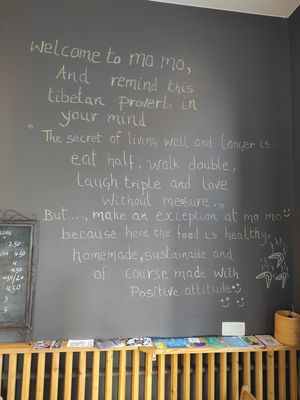 welcome to mo mo,
And remind this
tibetan proverb in
your mind
“The secret of living well and longer is:
eat half, walk double,
laugh triple and love
without measure.„
But...., make an exception at mo mo
because here the food is healthy,
homemade, sustainable and
of course made with
Positive attitude
2.50
4.50
4
4.50
4.50
3
3